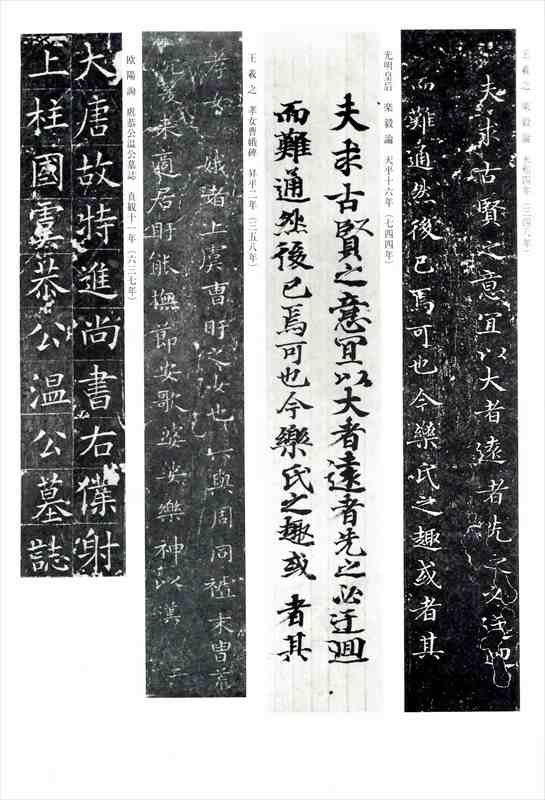 王羲之 楽毅論 永和四年(三四八年)
夫求古賢之意冝以大者遠者先之必迂迴
而難通然後已焉可也今樂氏之趣或者其
光明皇后 楽毅論 天平十六年(七四四年)
夫求古賢之意冝以大者遠者先之必迂迴
而難通然後已焉可也今樂氏之趣或者其
王羲之 孝女曹娥碑 昇平二年(三五八年)
孝女曹娥者上虞曹盱之女也其先與周同祖末胄荒
沉爰来適居盱能撫節安歌婆娑樂神以漢
欧陽詢 虞恭公温公墓誌 貞観十一年(六三七年)
大唐故特進尚書右僕射
上柱國虞恭公温公墓誌